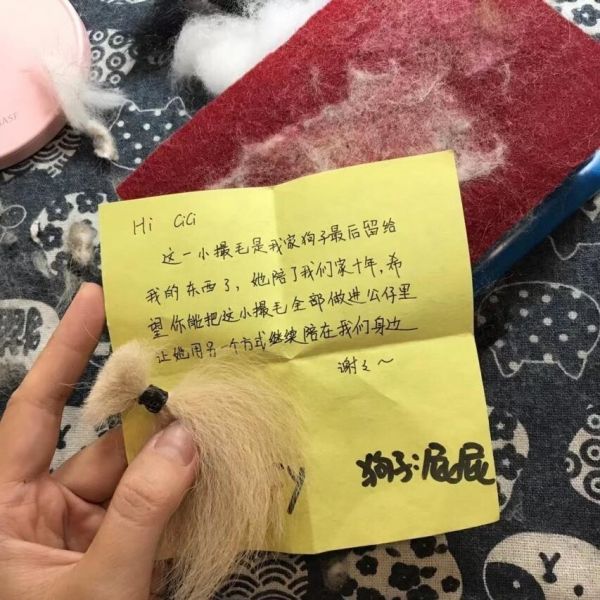 Hi CiCi
这一小撮毛是我家狗子最后留给
我的东西了，她陪了我们家十年，希
望你能把这小撮毛全部做进公仔里
让她用另一个方式继续陪在我们身边
谢谢～
狗子：屁屁